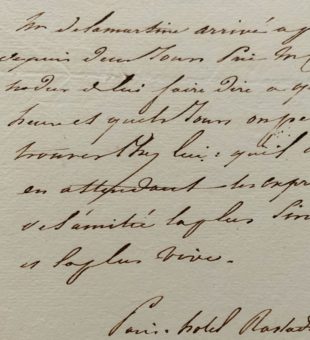 Mr de Lamartine arrivé a
depuis deux Jours Prie M
nodier de lui faire dire a qu
heure et quels Jours on pe
trouver chez lui: qu'il
en attendant les expr
de l'amitié la plus Sin
et la plus vive.
Paris. hotel Rastad